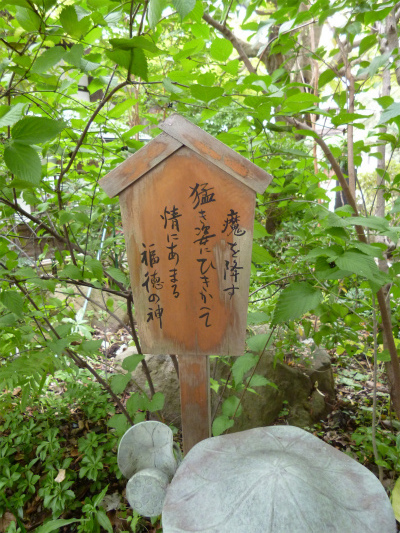 魔を降す
猛き姿にひきかへて
情にあまる
福徳の神